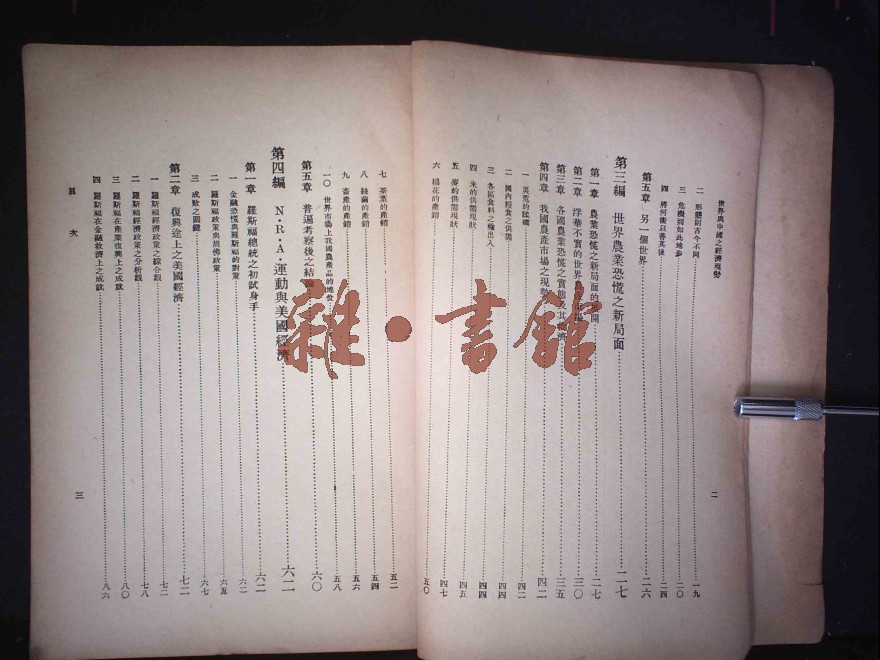 世界與中國之經濟現勢
二
二 形態則古今不同 一九
三 危機到如此地步 二〇
四 將何術以善其後 二四
第五章 另一個世界 二六
第三編 世界農業恐慌之新局面 二七
第一章 農業恐慌之新局面的展開 二七
第二章 浮華不實的世界農 三〇
第三章 各國農業恐慌之實態及其 三五
第四章 我國農產市場之現勢 四二
一 災荒的蹂躪 四二
二 國內糧食之供需 四四
三 各區食料之輸出入 四四
四 米的供需現狀 四五
五 麥的供需現狀 四七
六 棉花的產銷 五〇
七 茶葉的產銷 五二
八 絲繭的產銷 五四
九 畜產的產銷 五六
一〇 世界市場上我國農產品的地位 五八
第五章 普遍考察後之結論 六〇
第四編 N·R·A·運動與美國經濟 六二
第一章 羅斯福總統之初試身手 六二
一 金融恐慌與羅斯福的對策 六二
二 羅斯福政策與胡佛政策 六五
三 成敗之關鍵 六七
第二章 復興途上之美國經濟 七二
一 羅斯福經濟政策之綜合觀 七二
二 羅斯福經濟政策之分析觀 七八
三 羅斯福在產業復興上之成就 八〇
四 羅斯福在金融救濟上之成就 八六
目次
三
雜·書館